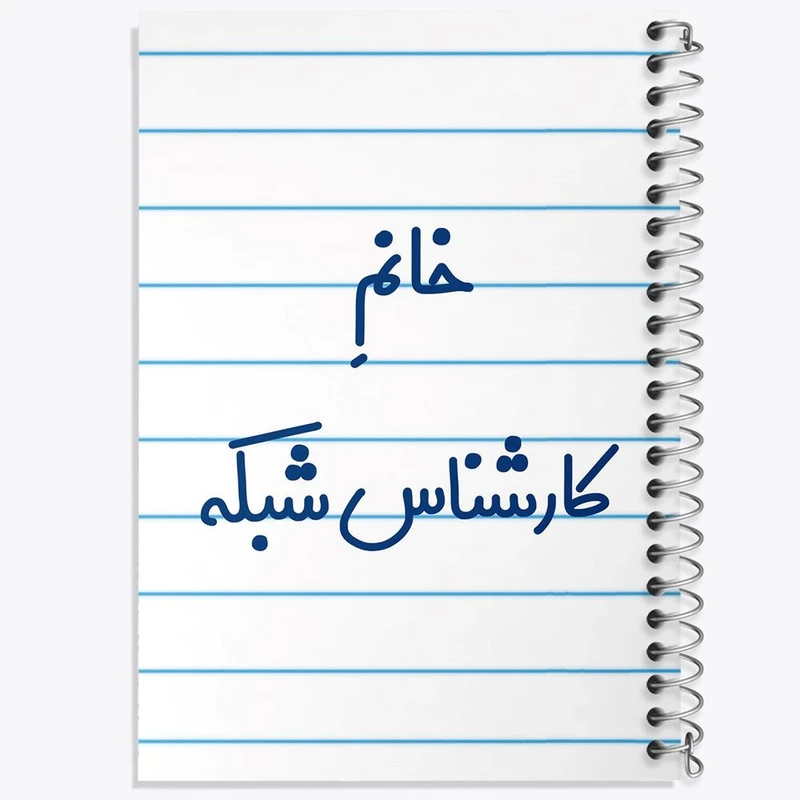 خانمِ
کارشناس شبکه